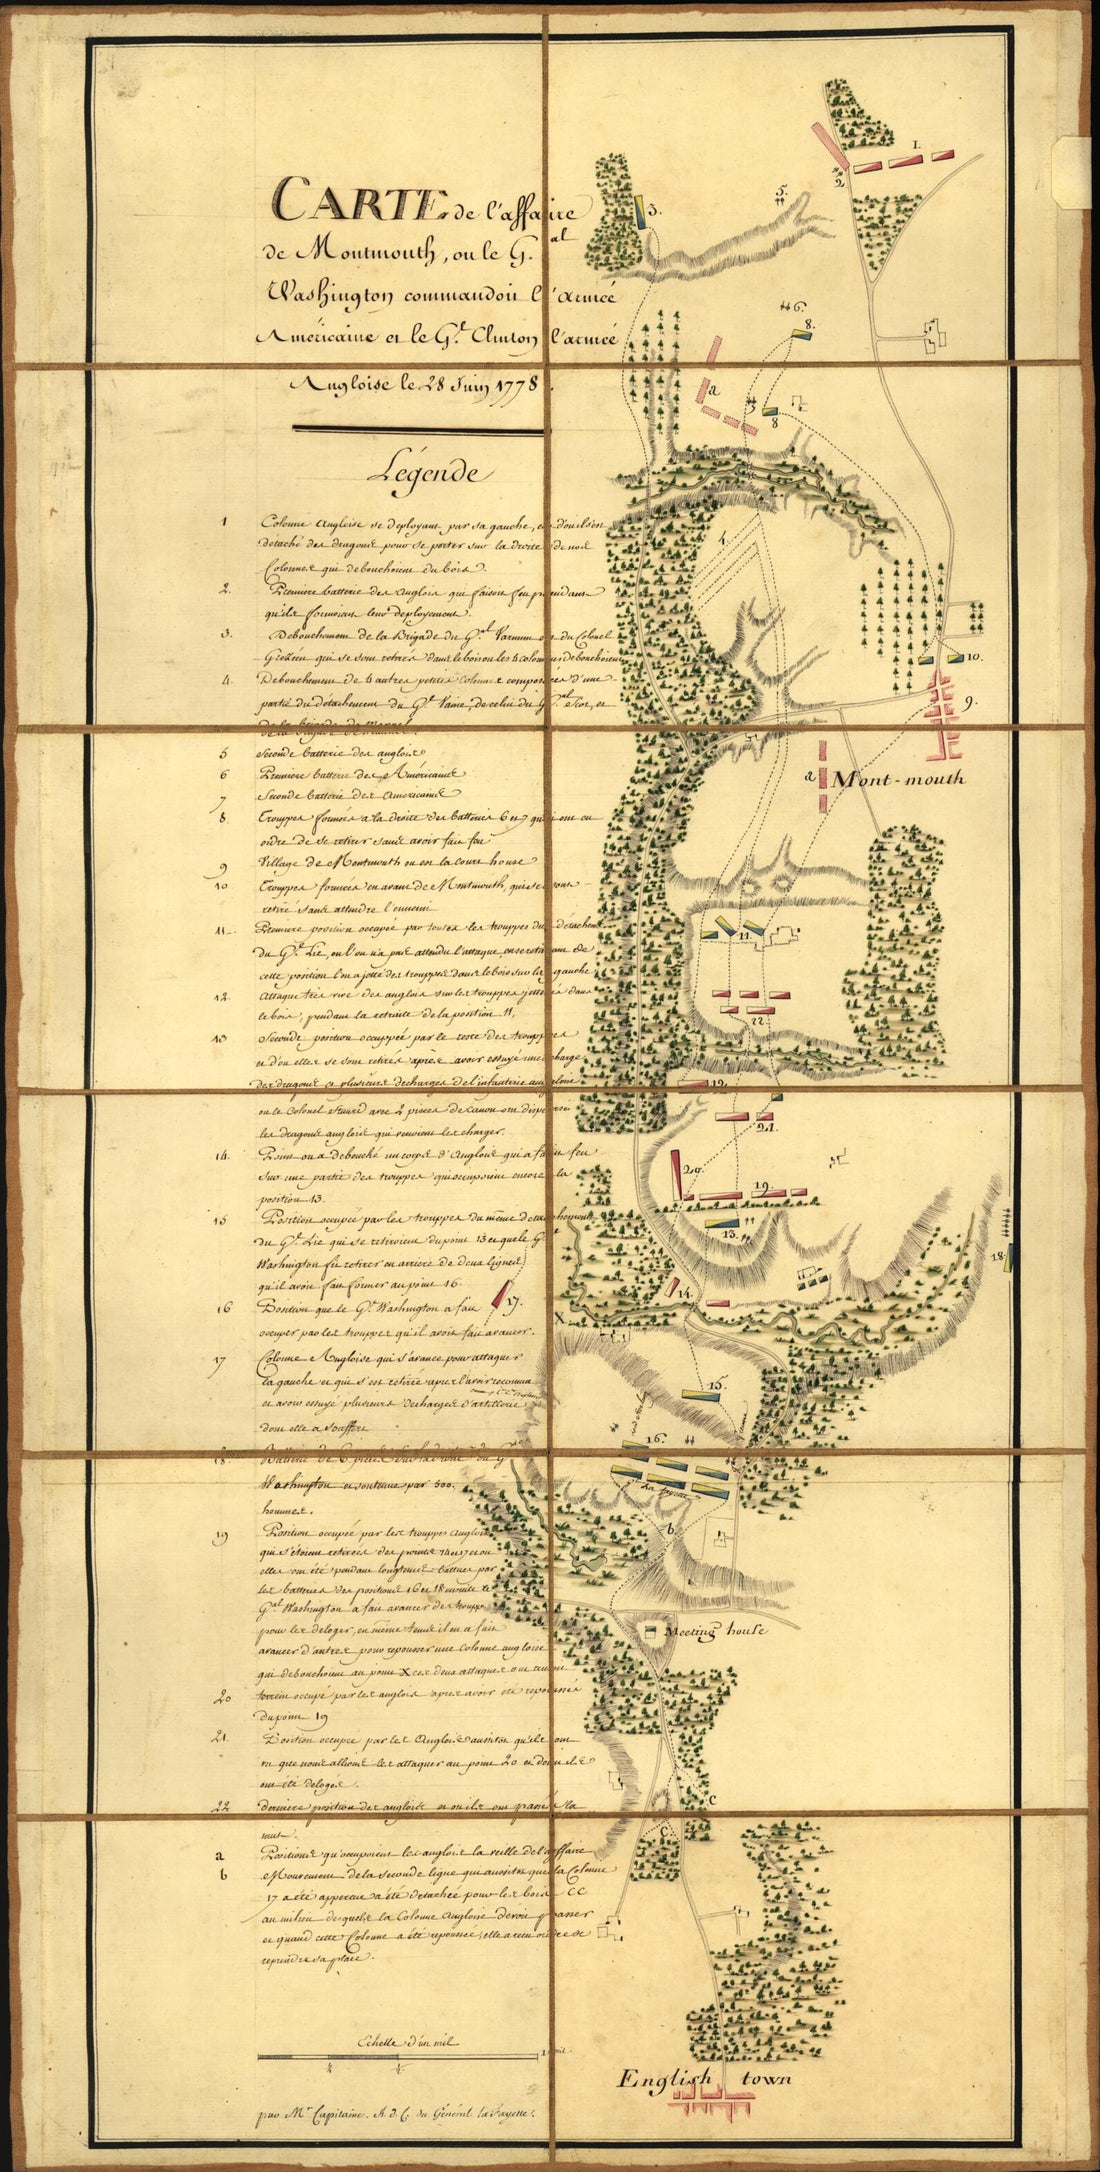 CARTE de l'affaire
de Montmouth, ou le G.al
Washington commandoit l'armée
Américaine et le G.l Clinton l'armée
Angloise le 28 Juin 1778
Légende
1 Colonne Angloise se deployant par sa gauche, et d'ou ils ont
detaché des dragons pour se porter sur la droite de nos
Colonnes qui debouchoient du bois.
2. Premiere batterie des Anglois qui faisoit feu pendant
qu'ils formoient leur deployement.
3. Debouchement de la Brigade du G.al Varnum et du Colonel
qui se sont retirés dans le bois ou les 4 colonnes debouchoient
4. Debouchement de 4 autres petites Colonnes composées d'une
partie du détachement du G.l Vaine, de celui du G.al Scot, et
de la brigade de
5 Seconde batterie des anglois
6 Premiere batterie des Américains
7 Seconde batterie des Américains
8. Trouppes formées a la droite des batteries 6 et 7 qui ont eu
ordre de se retirer sans avoir fait feu
9 Village de Montmouth ou est la court house
10 Trouppes formées en avant de Montmouth, qui se sont
retiré sans attendre l'ennemi
11. Premiere position occupée par toutes les trouppes du détachemt
du G.l Lée, ou l'on n'a pas attendu l'attaque, en se retirant de
cette position l'on a jetté des trouppes dans le bois sur la gauche
12. Attaque très vive des anglois sur les trouppes jettées dans
le bois, pendant la retraite de la position 11.
13 Seconde position occuppée par le reste des trouppes
et d'ou elles se sont retirés apres avoir essuyé une charge
des dragons et plusieurs decharges de l'infanterie angloise
ou le Colonel Stuard avec 2 pieces de canon ont dispersé
les dragons anglois qui venoient les charger.
14. Point ou a debouché un corps d'Anglois qui a fait feu
sur une partie des trouppes qui occupoient encore la
position 13.
15 Position occupée par les trouppes du même detachement
du G.l Lée qui se retiroient du point 13 et que le G.l
Washington fit retirer en arriere de deux lignes
qu'il avoit fait former au point 16.
16 Position que le G.l Washington a fait
occuper par les trouppes qu'il avoit fait avancer.
17 Colonne Angloise qui s'avance pour attaquer
la gauche et qui s'est retirée apres l'avoir reconnue
et avoir essuyé plusieurs decharges d'artillerie
dont elle a souffert
18. Batterie de 6 pieces sur la droite du G.l
Washington et soutenue par 500.
hommes.
19 Position occupée par les trouppes Angloises
qui s'étoient retirées des points 14 et 17 et ou
elles ont été pendant longtems battues par
les batteries des positions 16 et 18 ensuite le
G.al Washington a fait avancer des trouppes
pour les deloger, en même tems il en a fait
avancer d'autres pour repousser une Colonne angloise
qui debouchoient au point X ces deux attaques ont reussi
20 terrein occupé par les anglois apres avoir été repoussés
du point 19
21. Position occupée par les Anglois aussitot qu'ils ont
vu que nous allions les attaquer au point 20 et d'ou ils
ont été delogés.
22 derniere position des anglois et ou ils ont passé la
nuit.
a Positions qu'occupoient les anglois la veille de l'affaire
b Mouvement de la seconde ligne qui aussitot que la Colonne
17 a été apperçue a été detachée pour les bois CC
au milieu desquels la Colonne Angloise devoit passer
et quand cette Colonne a été repoussée, elle a reçu ordre de
reprendre sa place.
Echelle d'un mil
1 mil.
par Mr Capitaine. A. d. C. du Général La Fayette.
1.
2
3.
5.
6.
8.
a
7
8
4.
10.
9.
a
Mont-mouth
11.
22.
12.
21.
20.
19.
13.
18.
14.
17.
X
15.
16.
La fayette
b.
Meeting house
C
C.
English town